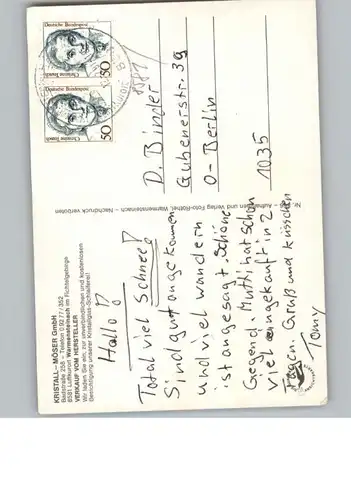 KRISTALL – MÖSER GmbH
Badstraße 258 – Telefon 0 92 77 / 352
8581 Luftkurort Warmensteinach im Fichtelgebirge
VERKAUF VOM HERSTELLER
Wir laden Sie ein, zur unverbindlichen und kostenlosen
Besichtigung unserer Kristallglas-Schleiferei!
Hallo!
Total viel Schnee!
Sind gut angekommen
und viel wandern
ist angesagt. Schöne
Gegend. Mutti hat schon
viel eingekauft in 2
Tagen. Gruß und Küsschen
Tomy
Aufnahme und Verlag Foto-Röthel, Warmensteinach – Nachdruck verboten
Deutsche Bundespost
50
Christine Teusch
Deutsche Bundespost
50
Christine Teusch
8581
D. Binder
Gubenerstr. 39
O-Berlin
1035